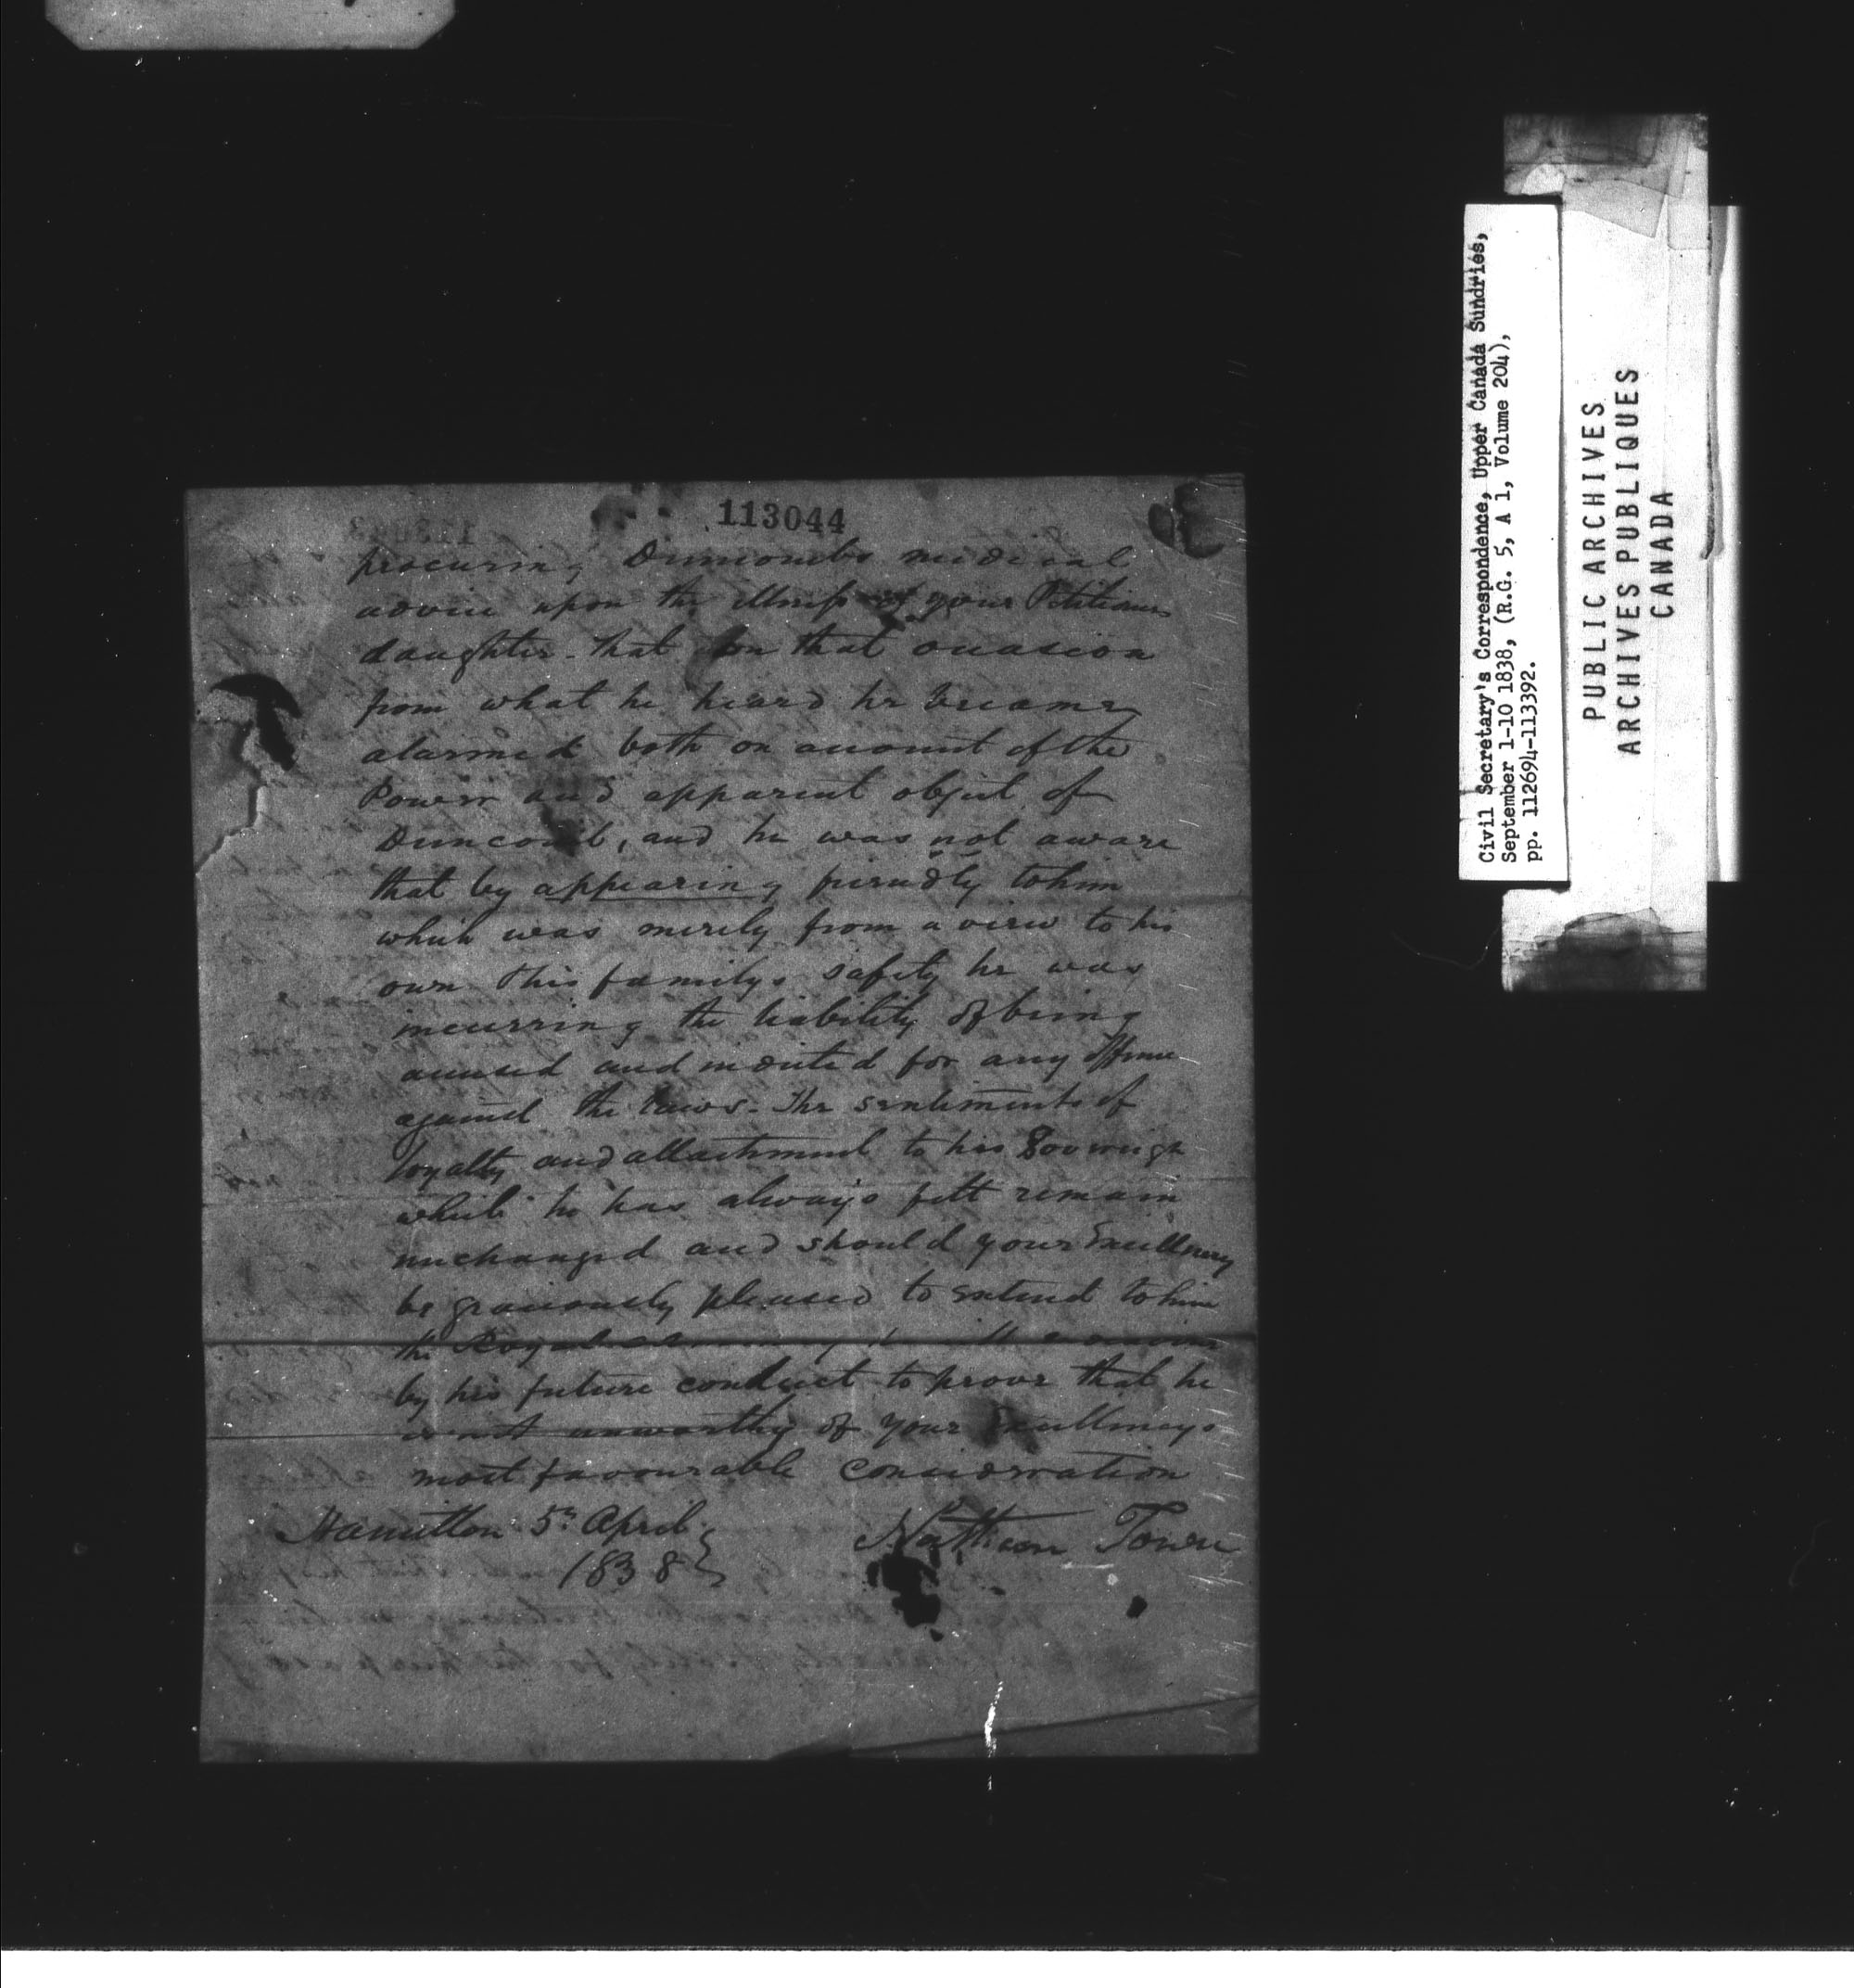 113044
procuring Duncombs medical
advice upon the illness of your Petitioners
daughter - that on that occasion
from what he heard he became
alarmed both on account of the
Power and apparent object of
Duncomb, and he was not aware
that by appearing friendly to him
which was merely from a view to his
own & his familys safety he was
incurring the liability of being
accused and indicted for any offence
against the laws - The sentiments of
loyalty and attachment to his Sovereign
which he has always felt remain
unchanged and should your Excellency
be graciously pleased to extend to him
the Royal
by his future conduct to prove that he
is not unworthy of your Excellencys
most favourable consideration
Hamilton 5th April
1838
Nathan Town
Civil Secretary's Correspondence, Upper Canada Sundries,
September 1-10 1838, (R.G. 5, A 1, Volume 204),
pp. 112694-113392.
PUBLIC ARCHIVES
ARCHIVES PUBLIQUES
CANADA